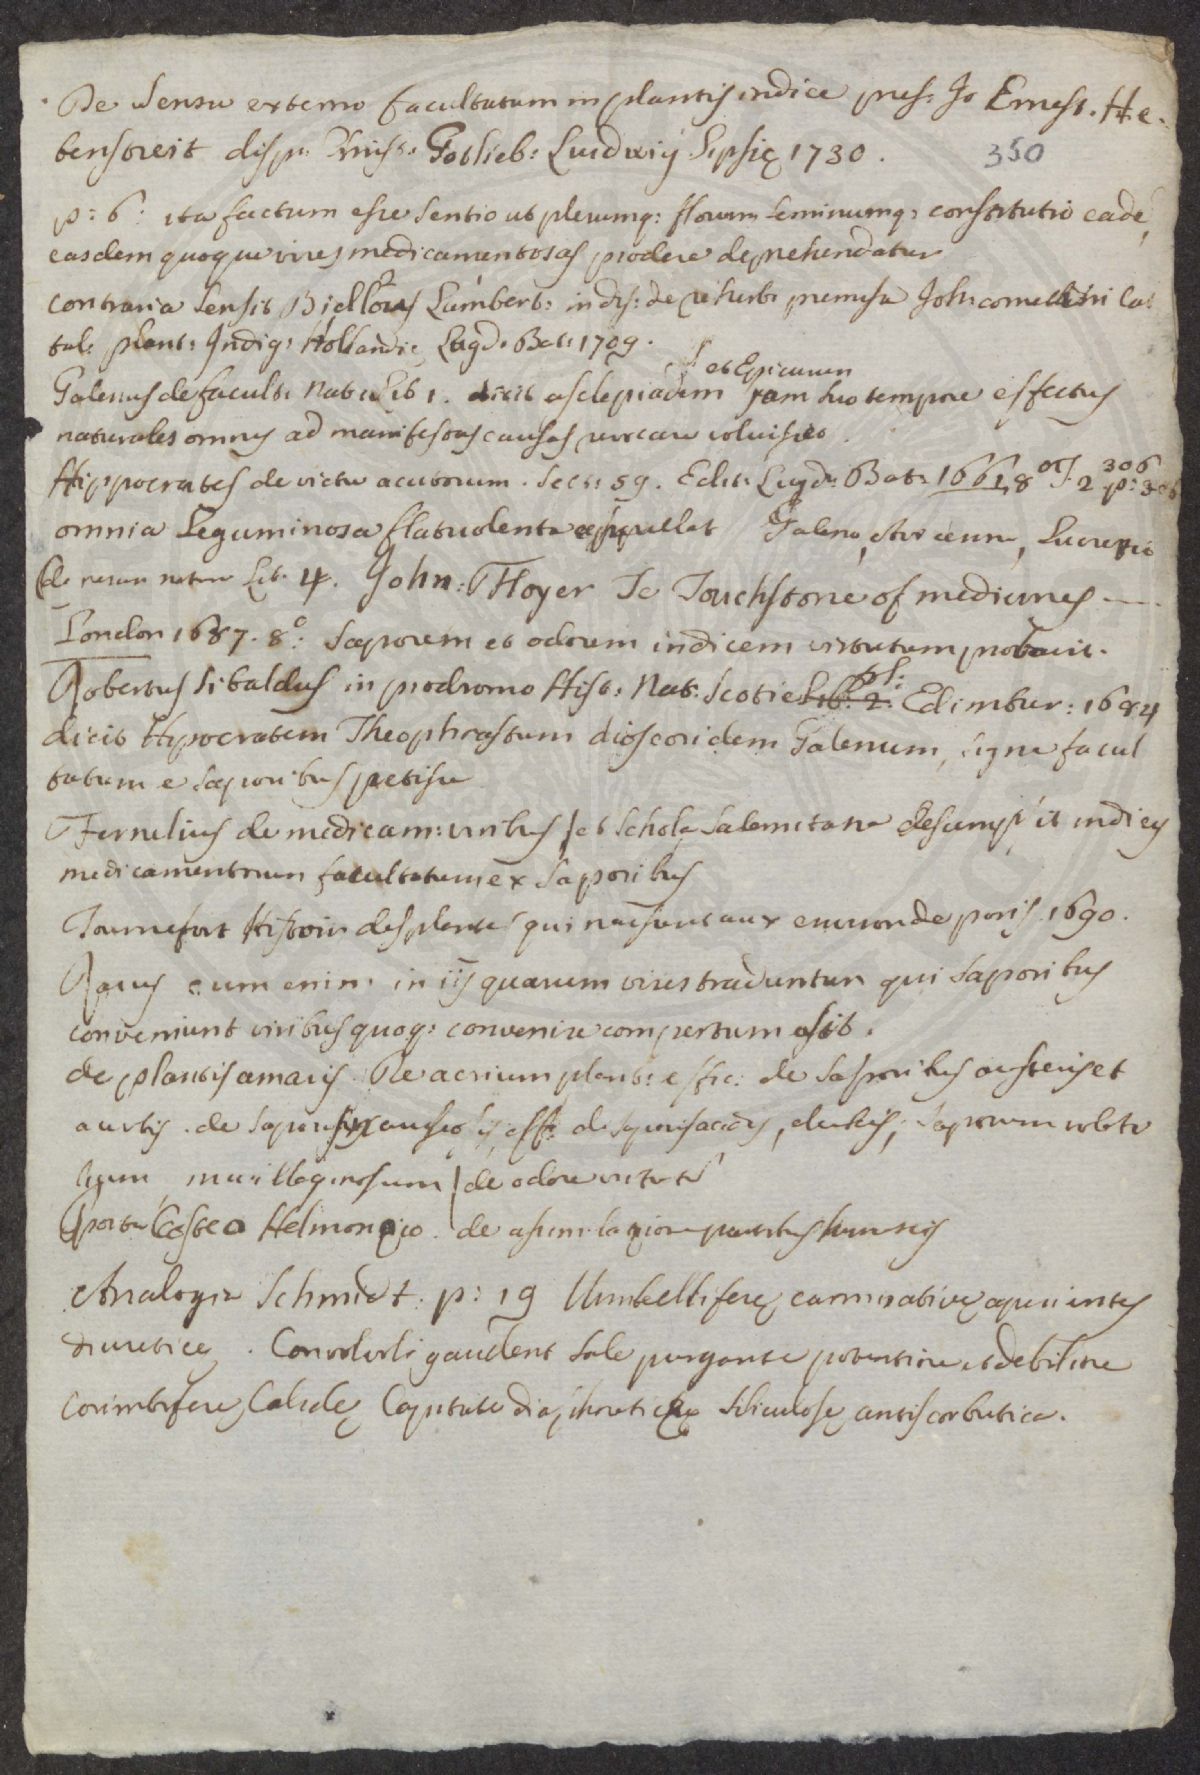 De Sensu externo facultatum in plantis indice pres: Jo Ernest. He-
benstreit disp: Christ: Gotlieb: Ludwig Lipsiȩ 1730.
350
p: 6: ita factum esse sentio ut plerumq: florum seminumq: constitutio eadē,
easdem quoque vires medicamentosas prodere deprehendatur
contraria sensit Lambert: in dis: de re herb: premissa Joh: comelini Ca
tal: plant: Indig: Hollandiȩ Lugd: Bat: 1709.
et Epicurum
Galenus de facult: Nat: Lib 1. dicit asclepiadem jam suo tempore effectus
naturales omnes ad manifestas causas revocare voluisse
306
Hippocrates de victu acutorum. Sect: 59. Edit: Lugd: Bat: 1661 8 T. 2 p:
omnia Leguminosa flatulenta appellat Galeno, Avicenna, Lucretio
de rerum natura Lib. 4. John: Floyer Te Touchstone of medicines
London 1687. 8°: Saporem et odorem indicem virtutum probavit.
Robertus Sibaldus in prodromo Hist: Nat: Scotie Lib: 2. Edimbur: 1684
dicit Hypocratem Theophrastum dioscoridem Galenum, signa facul
tatum e saporibus petisse
Fernelius de medicam: viribus et Schola Salernitana desumpsit indices
medicamentorum facultatum ex saporibus
Tournefort Histoire des plantes qui naissent aux environ de paris 1690.
Rajus cum enim in iis quarum vires traduntur qui saporibus
conveniunt viribus quoq: convenire compertum sit.
de plantis amaris De acrium plant: effic: de saporibus austeris et
de saporis acidis, dulcis, saporum
de odore
Porta Costeo Helmonzio de
Analogia Schmidt. p: 19 Umbelliferȩ carminativȩ aperientes
diureticȩ. Convolvoli gaudent sale purgante potentiore et debiliore
corimbiferȩ Calidȩ Capitatȩ diaphoreticȩ Siliculosȩ antiscorbutica.